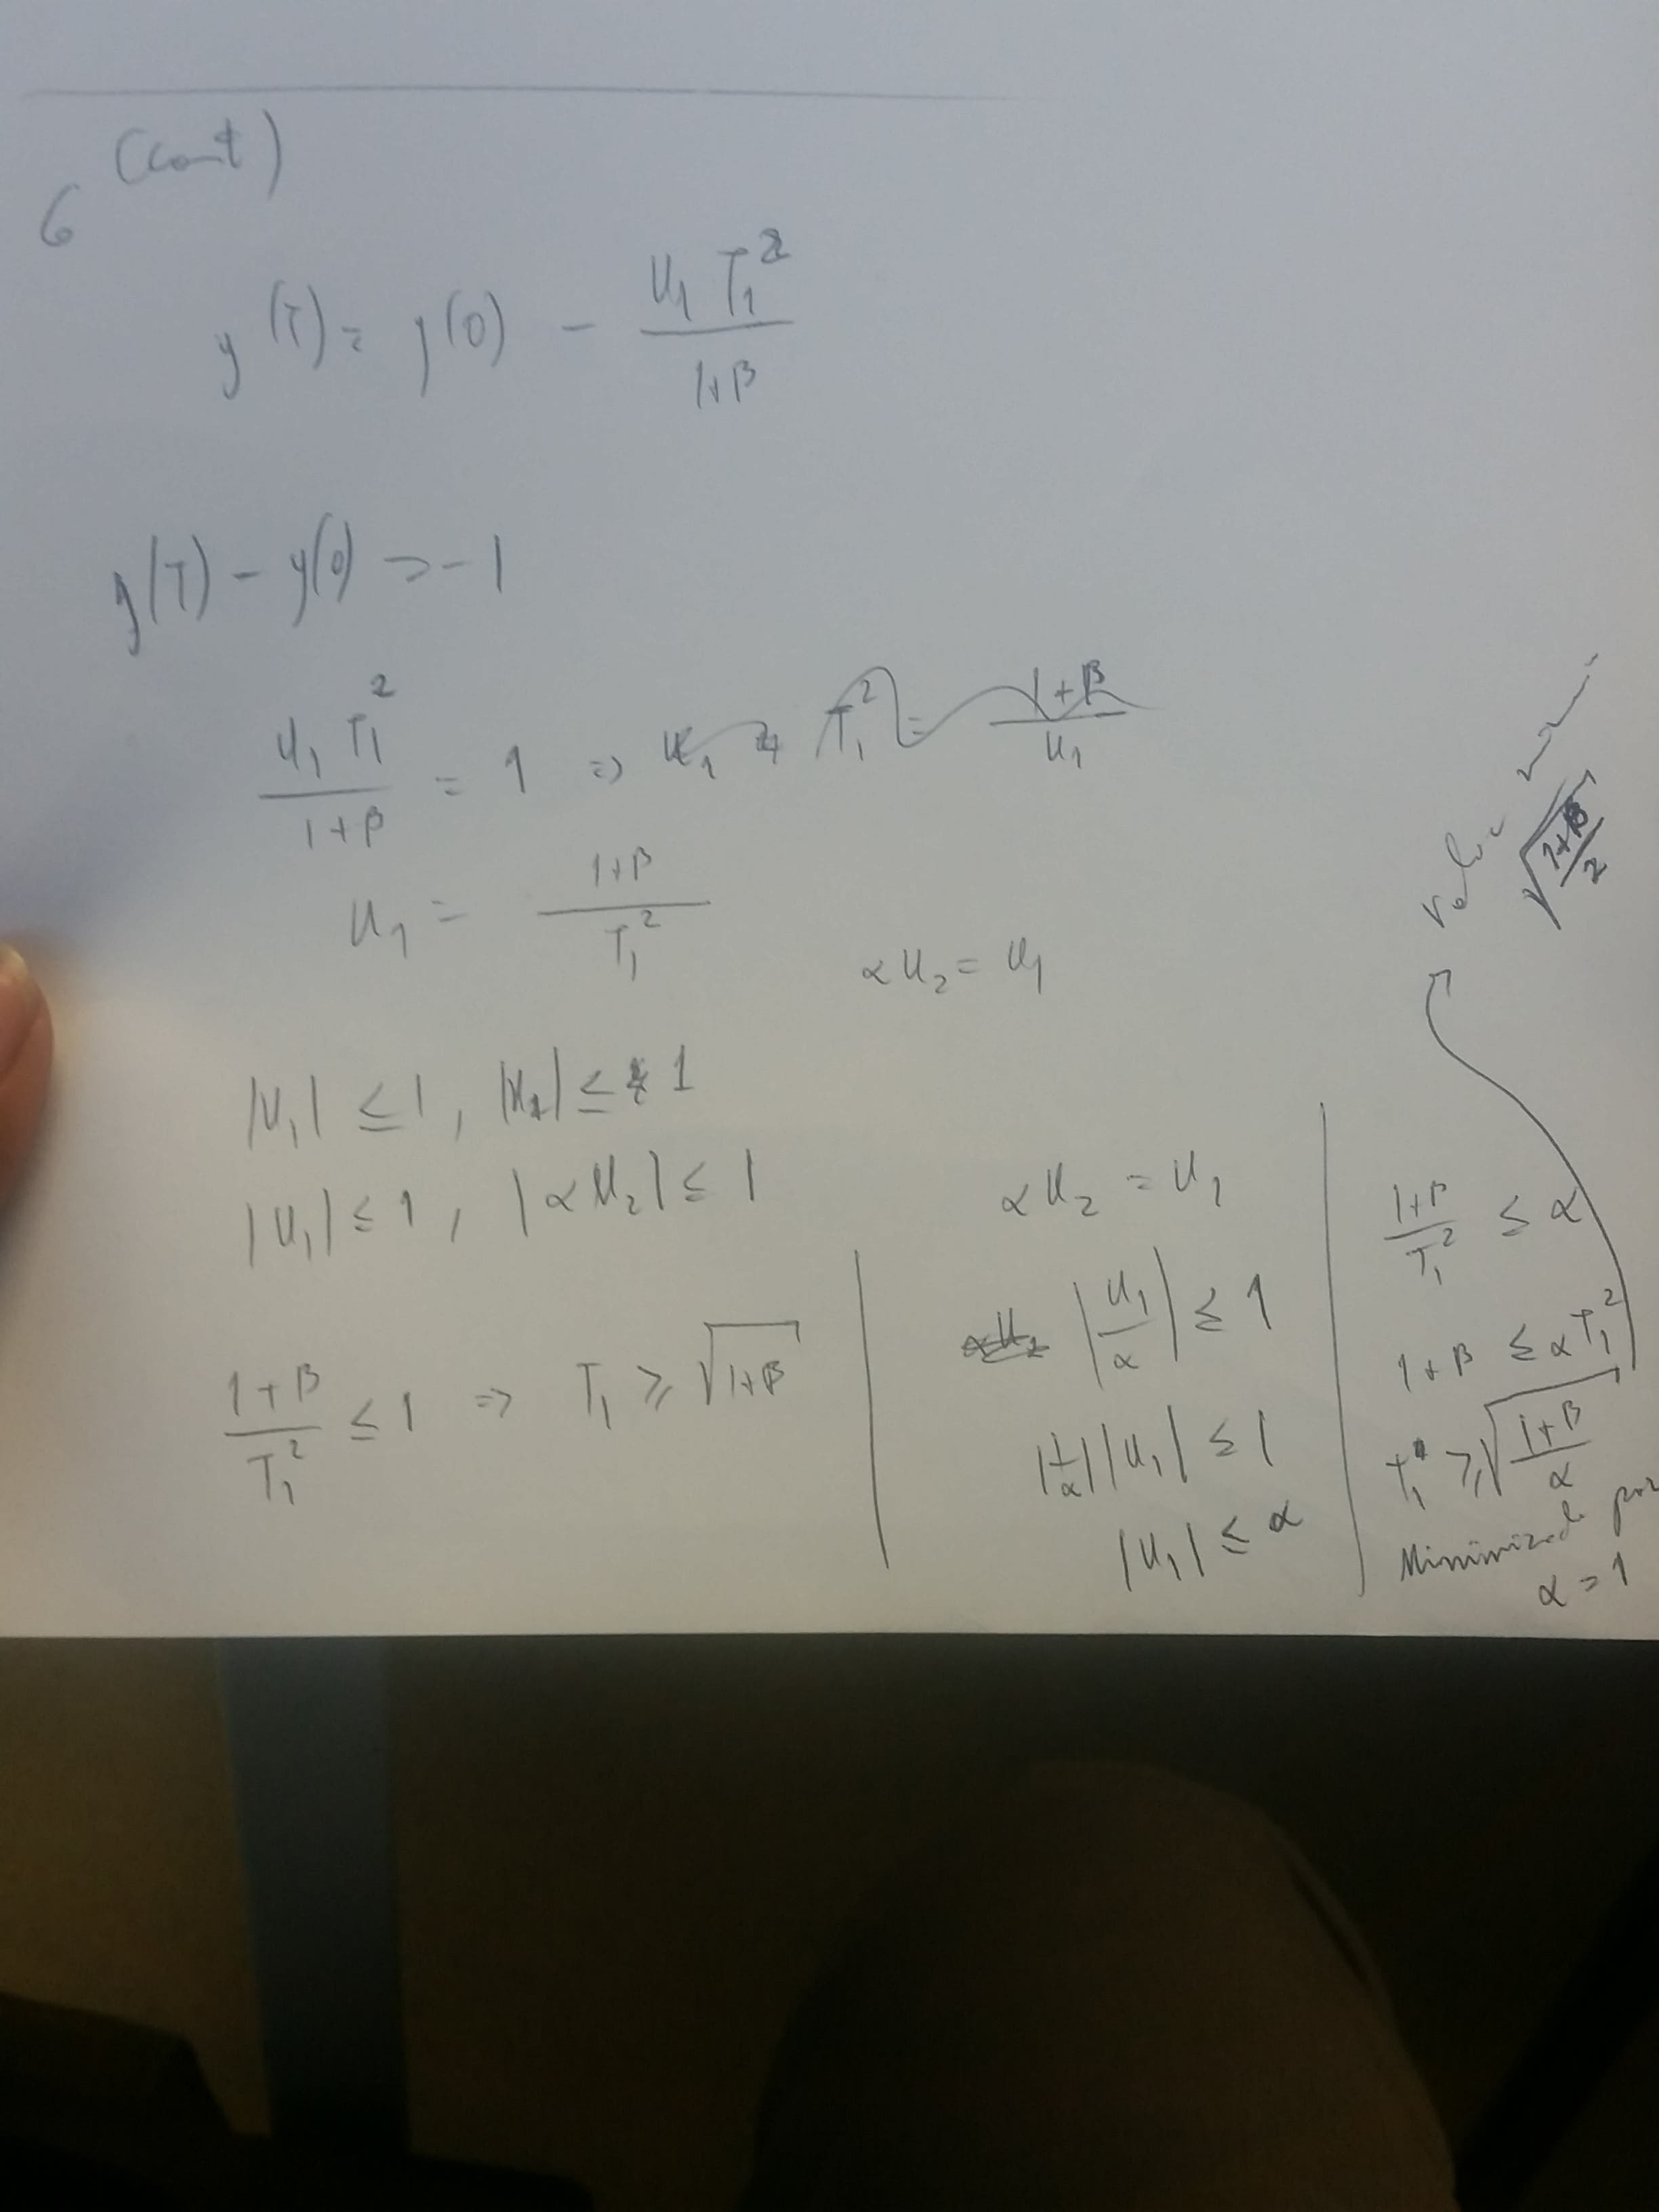 (cont)
6
y(T) = y(0) - \frac{u_1 T_1^2}{1+β}
y(T) - y(0) = -1
\frac{u_1 T_1^2}{1+β} = 1 => T_1^2 = \frac{1+β}{u_1}
u_1 = \frac{1+β}{T_1^2}
α u_2 = u_1
|u_1| ≤ 1, |u_2| ≤ 1
|u_1| ≤ 1, |α u_2| ≤ 1
\frac{1+β}{T_1^2} ≤ 1 => T_1 ≥ \sqrt{1+β}
α u_2 = u_1
|\frac{u_1}{α}| ≤ 1
|\frac{1}{α}| |u_1| ≤ 1
|u_1| ≤ α
\frac{1+β}{T_1^2} ≤ α
1+β ≤ α T_1^2
T_1 ≥ \sqrt{\frac{1+β}{α}}
Minimized
α = 1
\sqrt{\frac{1+β}{2}}